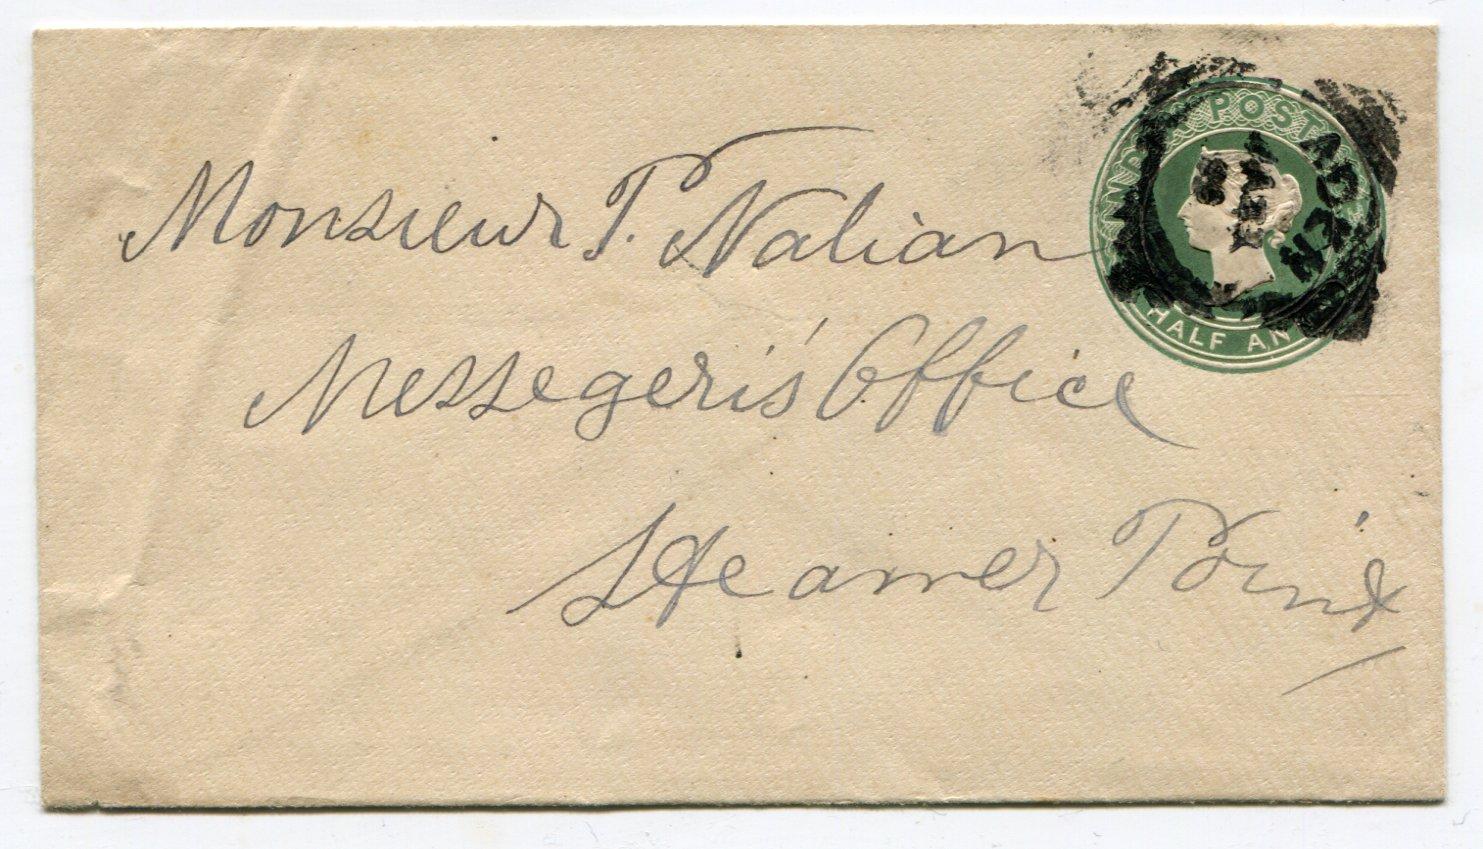 Monsieur P. Nalian
Messegeris' Office
Steamer Point
INDIA POSTA
HALF AN
ADEN